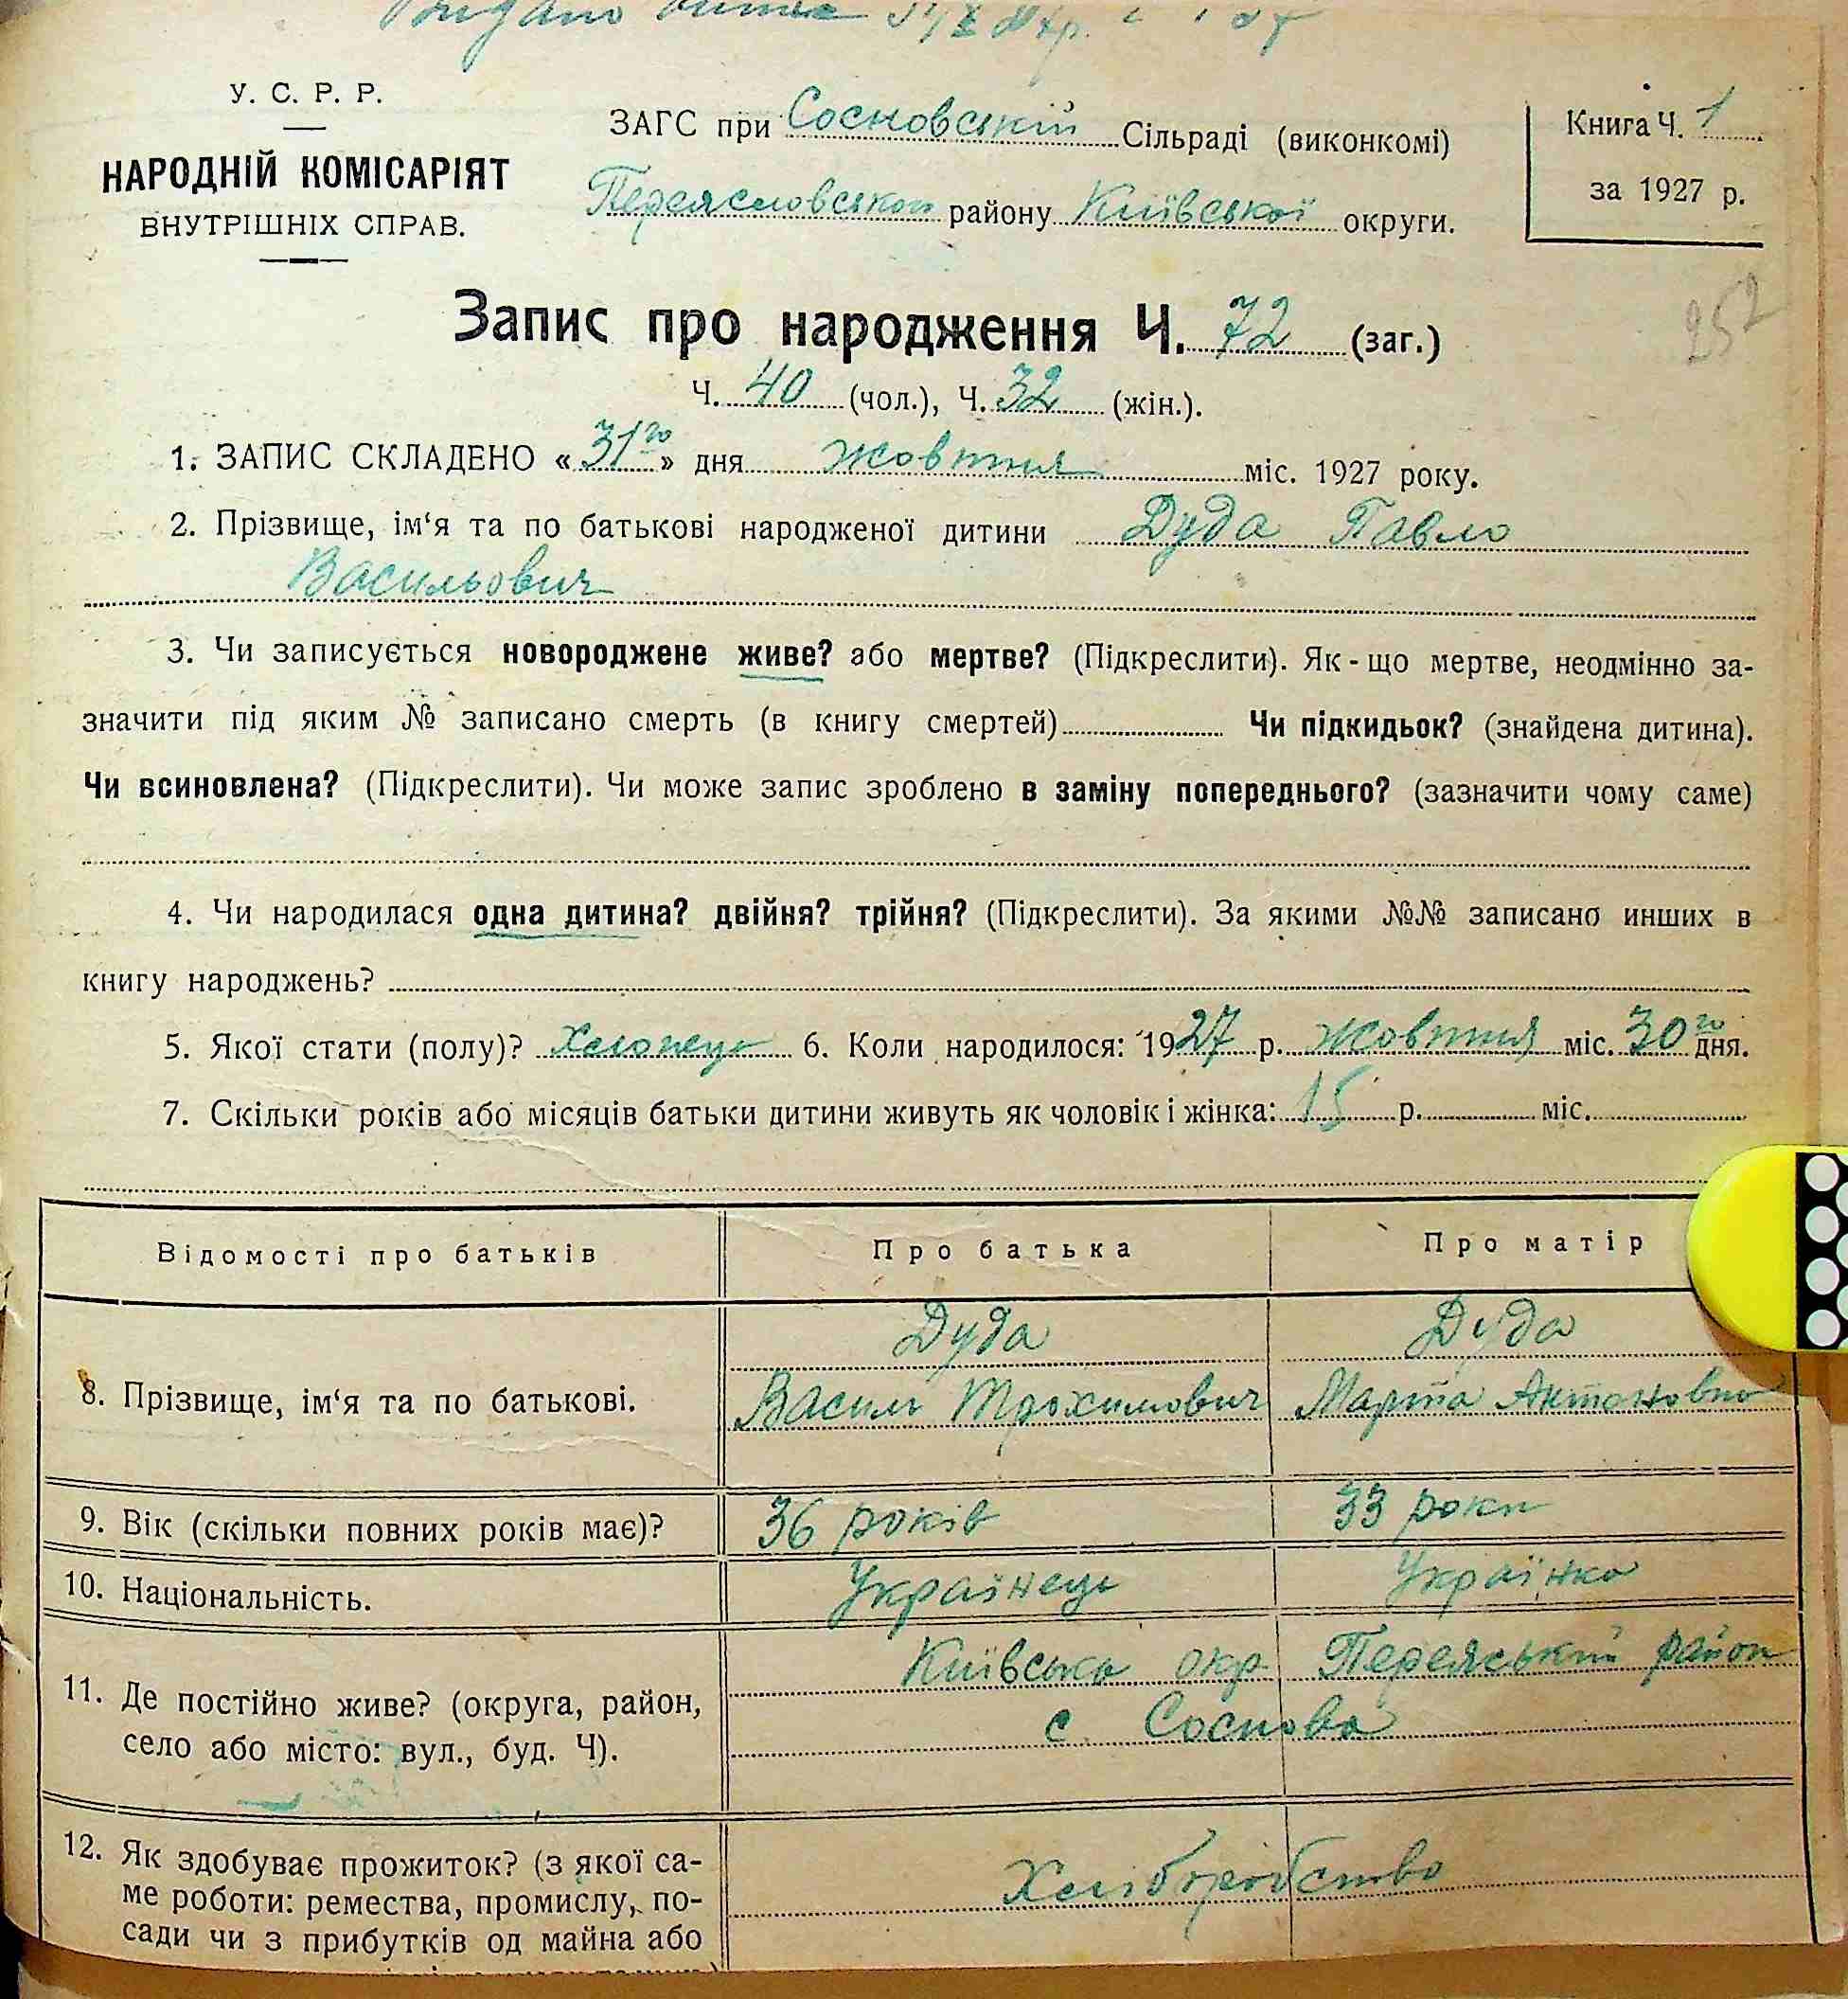 Видано
У. С. Р. Р.
НАРОДНІЙ КОМІСАРІЯТ
ВНУТРІШНІХ СПРАВ.
ЗАГС при Сосновській Сільраді (виконкомі)
Переясловського району Київської округи.
Книга Ч. 1
за 1927 р.
252
Запис про народження Ч. 72 (заг.)
Ч. 40 (чол.), Ч. 32 (жін.).
1. ЗАПИС СКЛАДЕНО «31го» дня жовтня міс. 1927 року.
2. Прізвище, ім‘я та по батькові народженої дитини Дуда Павло
Васильович
3. Чи записується новороджене живе? або мертве? (Підкреслити). Як-що мертве, неодмінно за-
значити під яким № записано смерть (в книгу смертей) Чи підкидьок? (знайдена дитина).
Чи всиновлена? (Підкреслити). Чи може запис зроблено в заміну попереднього? (зазначити чому саме)
4. Чи народилася одна дитина? двійня? трійня? (Підкреслити). За якими №№ записано инших в
книгу народжень?
5. Якої стати (полу)? Хлопець 6. Коли народилося: 1927 р. жовтня міс. 30го дня.
7. Скільки років або місяців батьки дитини живуть як чоловік і жінка: 15 р. міс.
Відомості про батьків Про батька Про матір
Дуда Дуда
8. Прізвище, ім‘я та по батькові. Василь Трохимович Марта Антоновна
9. Вік (скільки повних років має)? 36 років 33 роки
10. Національність. Українець Українка
Київська окр Переяський район
11. Де постійно живе? (округа, район,
с. Соснова
село або місто: вул., буд. Ч).
12. Як здобуває прожиток? (з якої са-
Хліборобство
ме роботи: ремества, промислу, по-
сади чи з прибутків од майна або